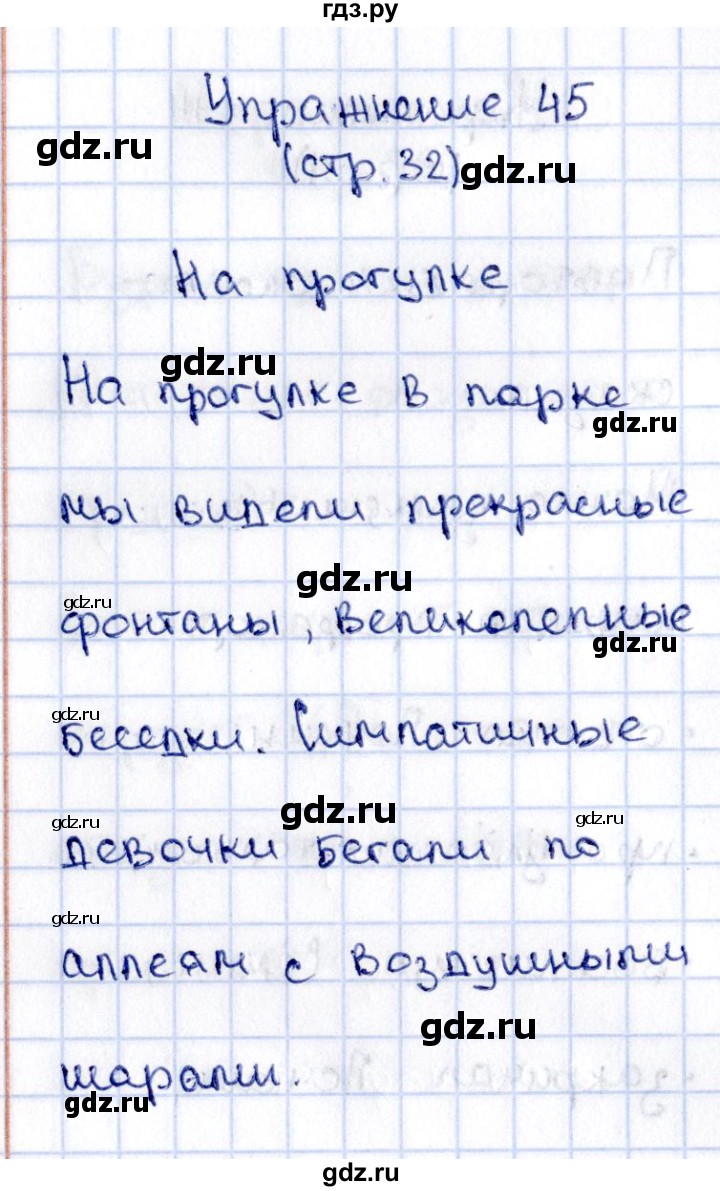 гдз.ру
Упражнение 45
gdz.ru
(стр. 32)
gdz.ru
На прогулке
gdz.ru
На прогулке в парке
gdz.ru
мы видели прекрасные
gdz.ru
gdz.ru
фонтаны, великолепные
gdz.ru
gdz.ru
беседки. Симпатичные
gdz.ru
gdz.ru
gdz.ru
девочки бегали по
gdz.ru
аллеям с воздушными
gdz.ru
шарами.
gdz.ru
gdz.ru